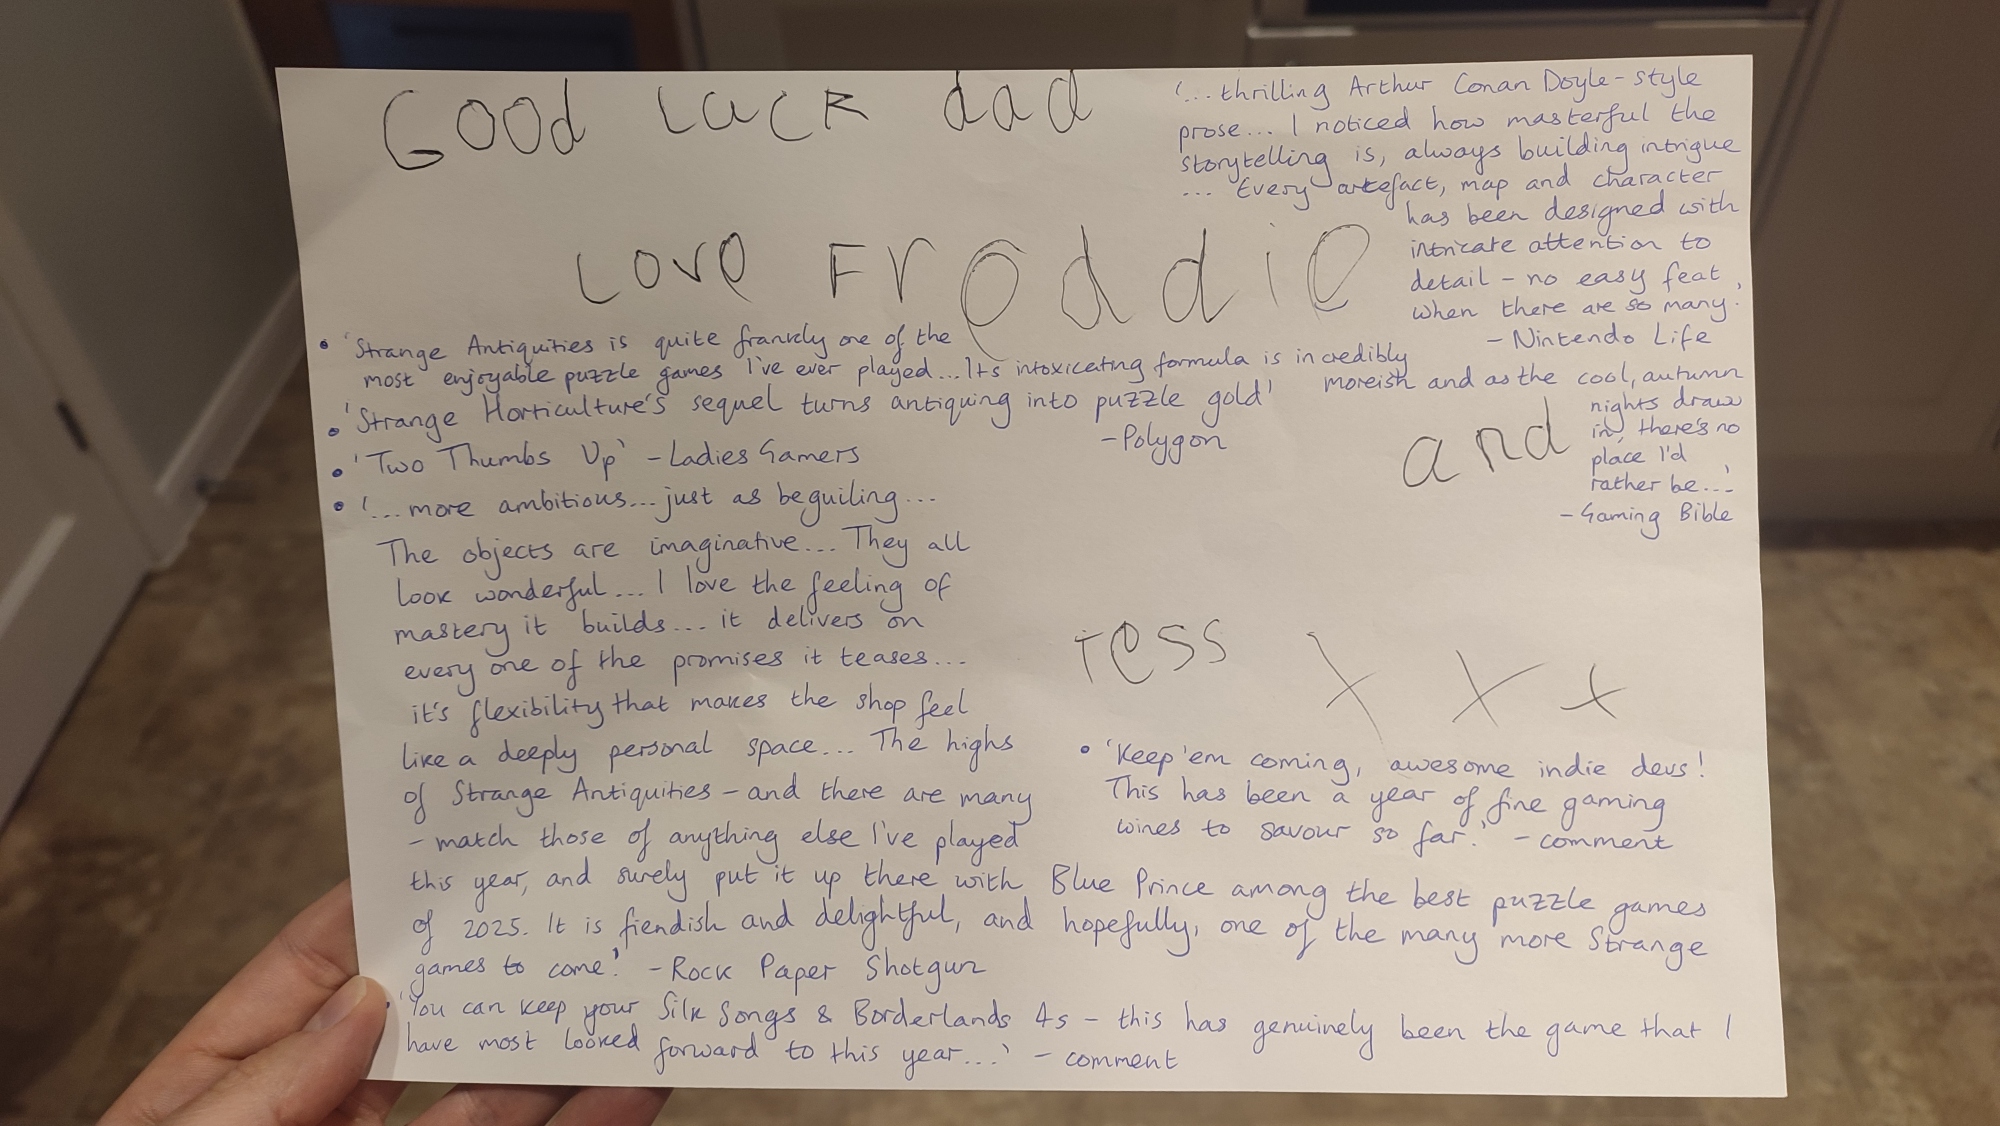 Good Luck dad
Love Freddie
and
Tess x x x
'...thrilling Arthur Conan Doyle-style
prose... I noticed how masterful the
storytelling is, always building intrigue
... Every artefact, map and character
has been designed with
intricate attention to
detail - no easy feat
when there are so many.'
- Nintendo Life
• 'Strange Antiquities is quite frankly one of the
most enjoyable puzzle games I've ever played... Its intoxicating formula is incredibly
moreish and as the cool, autumn
nights draw
in, there's no
place I'd
rather be...'
- Gaming Bible
• 'Strange Horticulture's sequel turns antiquing into puzzle gold'
- Polygon
• 'Two Thumbs Up' - Ladies Gamers
• '... more ambitious... just as beguiling...
The objects are imaginative... They all
look wonderful... I love the feeling of
mastery it builds... it delivers on
every one of the promises it teases...
it's flexibility that makes the shop feel
like a deeply personal space... The highs
of Strange Antiquities - and there are many
- match those of anything else I've played
this year, and surely put it up there with Blue Prince among the best puzzle games
of 2025. It is fiendish and delightful, and hopefully, one of the many more Strange
games to come.' - Rock Paper Shotgun
• 'Keep 'em coming, awesome indie devs!
This has been a year of fine gaming
wines to savour so far.' - comment
• 'You can keep your Silk Songs & Borderlands 4s - this has genuinely been the game that I
have most looked forward to this year...' - comment